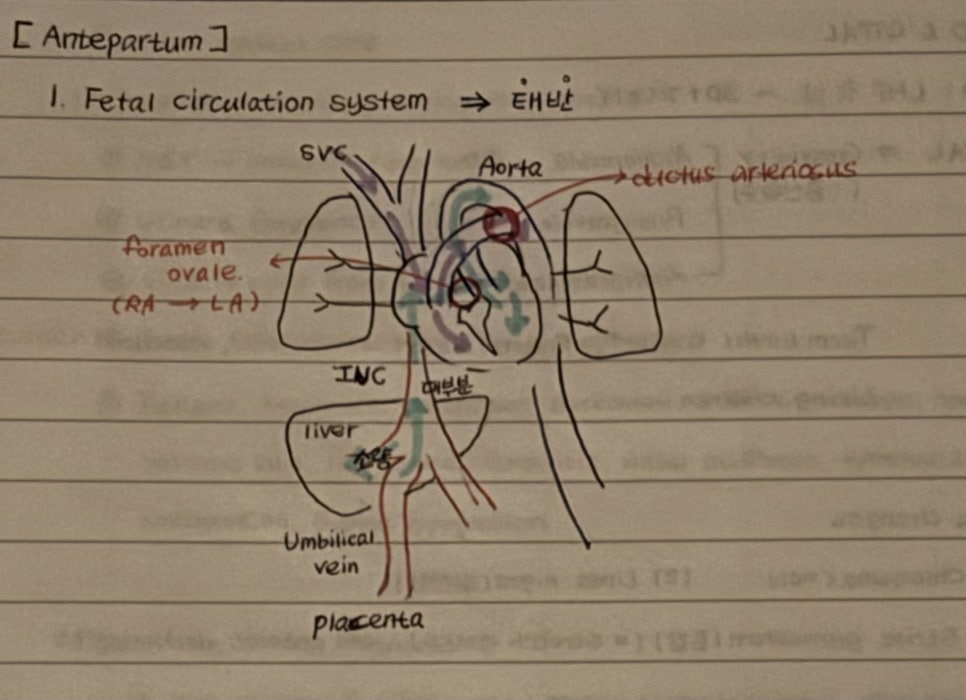 [Antepartum]
1. Fetal circulation system ⇒ 태반
SVC
Aorta
ductus arteriosus
foramen
ovale.
(RA → LA)
INC
대부분
liver
소량
Umbilical
vein
placenta